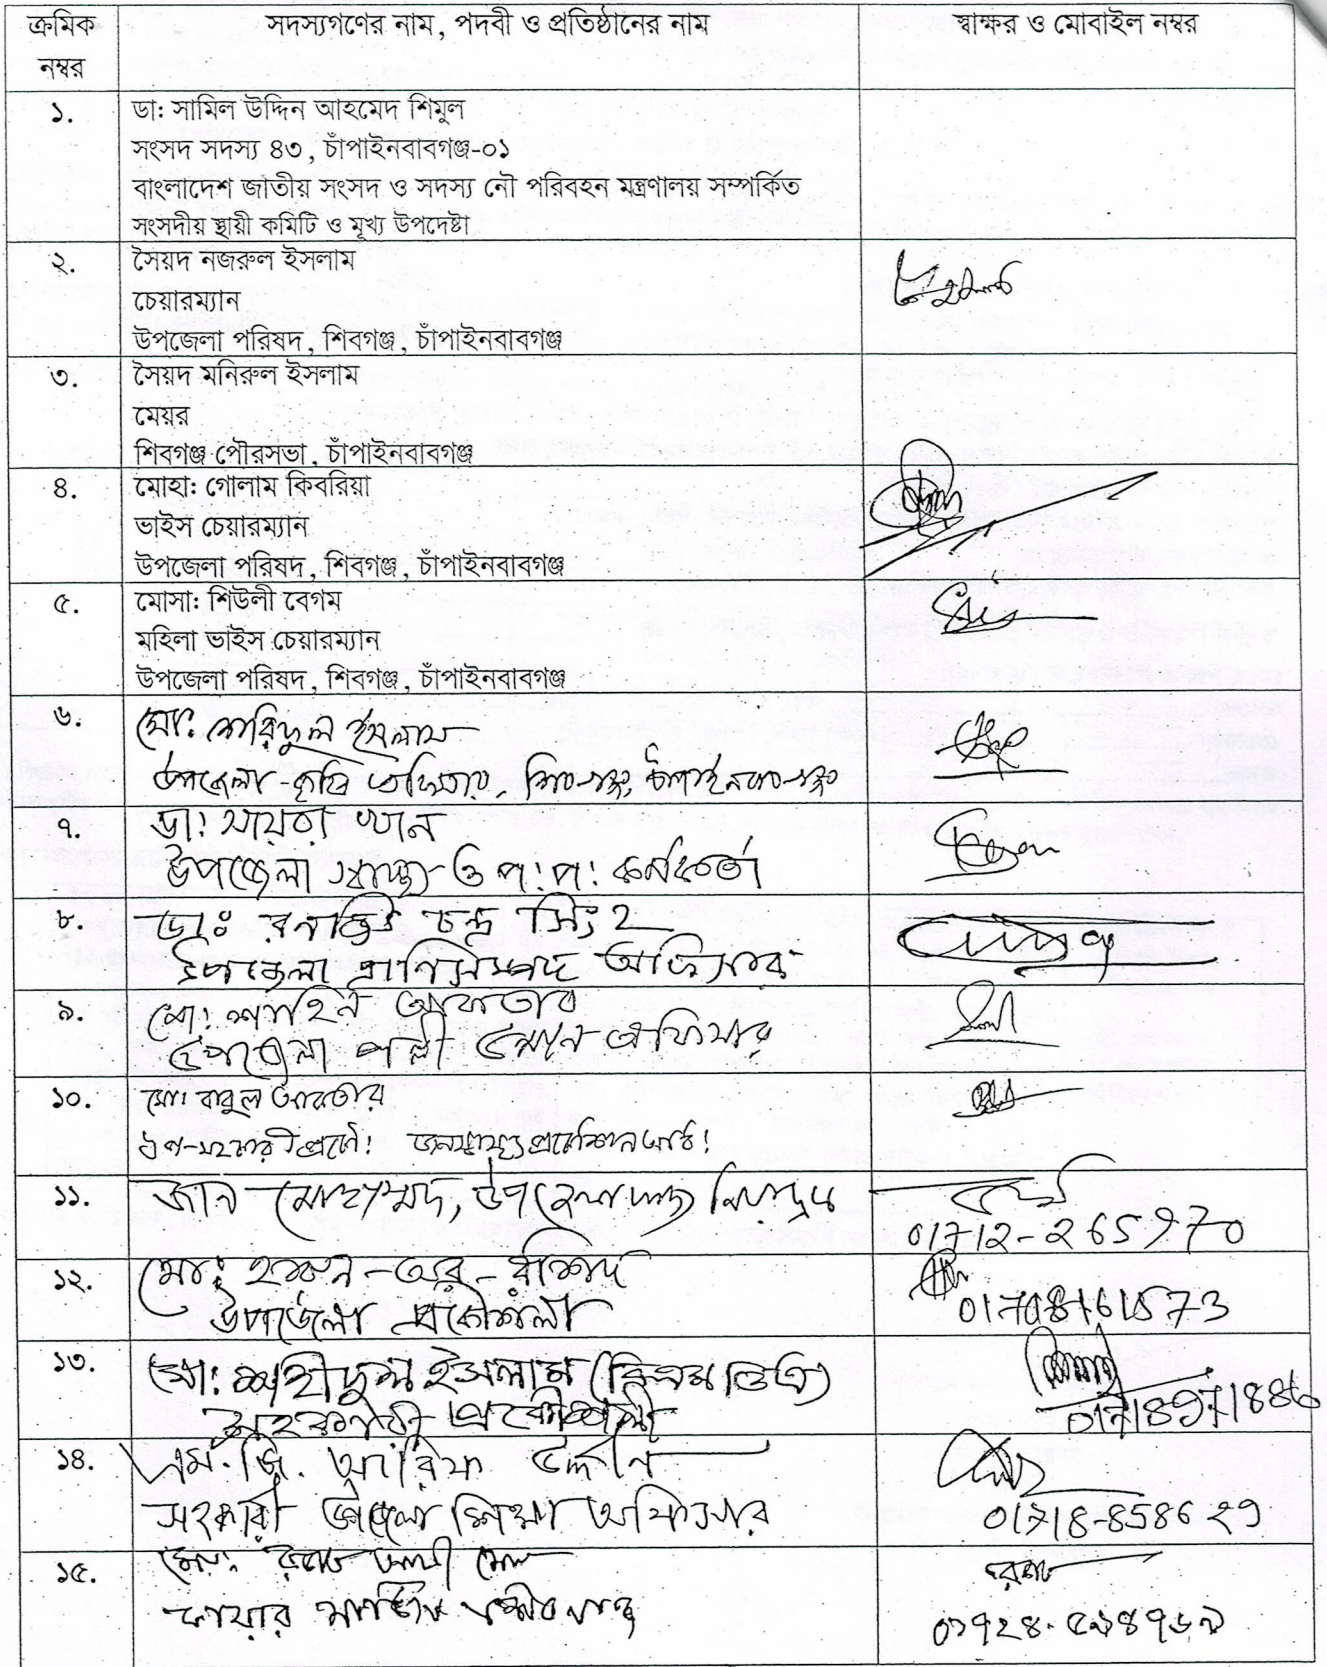 ক্রমিক নম্বর সদস্যগণের নাম, পদবী ও প্রতিষ্ঠানের নাম স্বাক্ষর ও মোবাইল নম্বর
১. ডা: সামিল উদ্দিন আহমেদ শিমুল
সংসদ সদস্য ৪৩, চাঁপাইনবাবগঞ্জ-০১
বাংলাদেশ জাতীয় সংসদ ও সদস্য নৌ পরিবহন মন্ত্রণালয় সম্পর্কিত
সংসদীয় স্থায়ী কমিটি ও মূখ্য উপদেষ্টা
২. সৈয়দ নজরুল ইসলাম
চেয়ারম্যান
উপজেলা পরিষদ, শিবগঞ্জ, চাঁপাইনবাবগঞ্জ
৩. সৈয়দ মনিরুল ইসলাম
মেয়র
শিবগঞ্জ পৌরসভা, চাঁপাইনবাবগঞ্জ
৪. মোহা: গোলাম কিবরিয়া
ভাইস চেয়ারম্যান
উপজেলা পরিষদ, শিবগঞ্জ, চাঁপাইনবাবগঞ্জ
৫. মোসা: শিউলী বেগম
মহিলা ভাইস চেয়ারম্যান
উপজেলা পরিষদ, শিবগঞ্জ, চাঁপাইনবাবগঞ্জ
৬. মো: শরিফুল ইসলাম
উপজেলা কৃষি অফিসার, শিবগঞ্জ, চাঁপাইনবাবগঞ্জ
৭. ডা: সায়রা খান
উপজেলা স্বাস্থ্য ও প: প: কর্মকর্তা
৮. ডাঃ রনজিৎ চন্দ্র সিংহ
উপজেলা প্রাণিসম্পদ অফিসার
৯. মো: শাহিন আকতার
উপজেলা পল্লী উন্নয়ন অফিসার
১০. মো: বাবুল আকতার
উপ-সহকারী প্রকৌ: জনস্বাস্থ্য প্রকৌশল অধি:
১১. জান মোহাম্মদ, উপজেলা
01712-265970
১২. মো: হারুন-অর-রশিদ
উপজেলা প্রকৌশলী
১৩. মো: শহীদুল ইসলাম
সহকারী প্রকৌশলী
১৪. এম. জি. আরিফ উদ্দীন
সহকারী উপজেলা শিক্ষা অফিসার
01718-858629
১৫. মো:
ফায়ার সার্ভিস